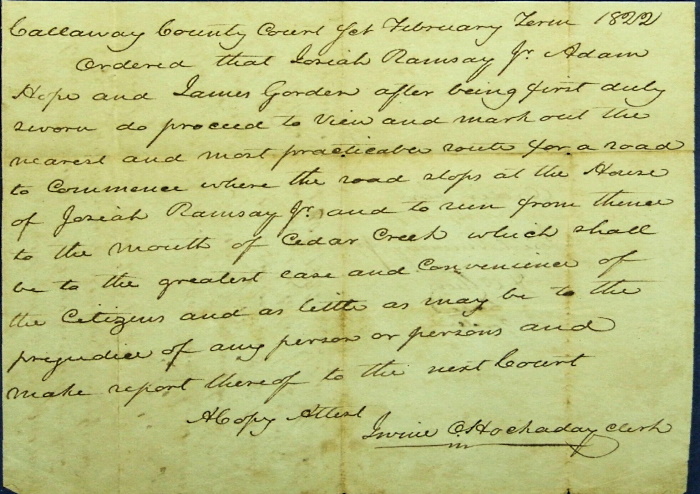 Callaway County Court Sct February Term 1822
Ordered that Josiah Ramsay Jr. Adam
Hope and James Gorden after being first duly
sworn do proceed to View and mark out the
nearest and most practicable route for a road
to Commence where the road stops at the House
of Josiah Ramsay Jr. and to run from thence
to the mouth of Cedar Creek which shall
be to the greatest ease and Convenience of
the Citizens and as little as may be to the
prejudice of any person or persons and
make report thereof to the next Court
A Copy Attest
Irvine O. Hockaday clerk